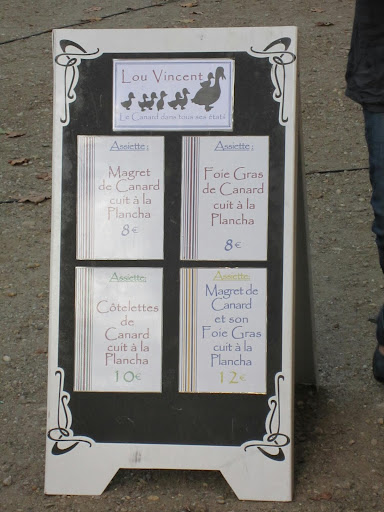 Lou Vincent
Le Canard dans tous ses états
Assiette :
Magret
de Canard
cuit à la
Plancha
8€
Assiette :
Foie Gras
de Canard
cuit à la
Plancha
8€
Assiette:
Côtelettes
de
Canard
cuit à la
Plancha
10€
Assiette:
Magret de
Canard
et son
Foie Gras
cuit à la
Plancha
12€